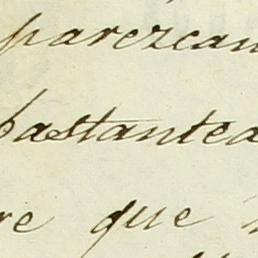 parezcan
bastantea
re que